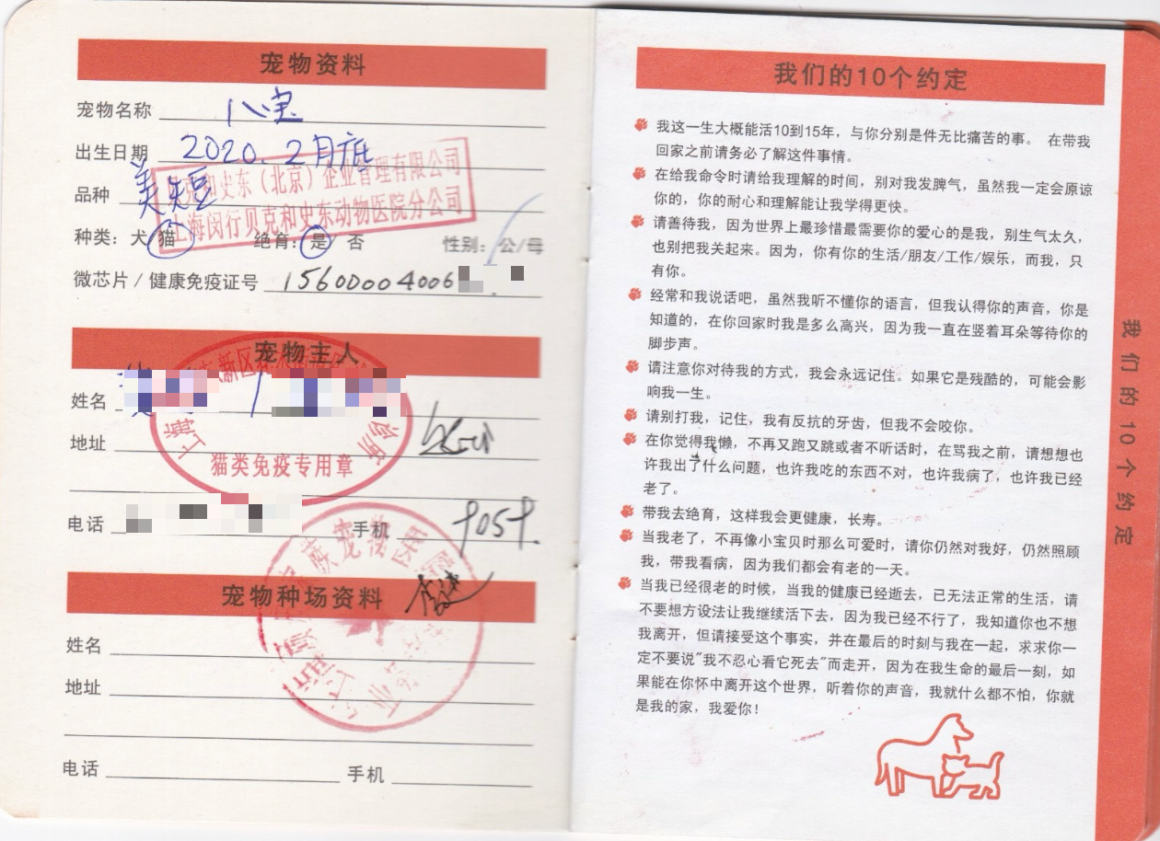 宠物资料
宠物名称 八宝
出生日期 2020.2月底
品种 美短
种类：犬 猫 绝育：是 否 性别：公/母
贝克和史东（北京）企业管理有限公司
上海闵行贝克和史东动物医院分公司
微芯片/健康免疫证号 15600004006
宠物主人
姓名
地址
猫类免疫专用章
电话 手机
宠物种场资料
姓名
地址
电话 手机
我们的10个约定
我这一生大概能活10到15年，与你分别是件无比痛苦的事。 在带我
回家之前请务必了解这件事情。
在给我命令时请给我理解的时间，别对我发脾气，虽然我一定会原谅
你的，你的耐心和理解能让我学得更快。
请善待我，因为世界上最珍惜最需要你的爱心的是我，别生气太久，
也别把我关起来。因为，你有你的生活/朋友/工作/娱乐，而我，只
有你。
经常和我说话吧，虽然我听不懂你的语言，但我认得你的声音，你是
知道的，在你回家时我是多么高兴，因为我一直在竖着耳朵等待你的
脚步声。
请注意你对待我的方式，我会永远记住。如果它是残酷的，可能会影
响我一生。
请别打我，记住，我有反抗的牙齿，但我不会咬你。
在你觉得我懒，不再又跑又跳或者不听话时，在骂我之前，请想想也
许我出了什么问题，也许我吃的东西不对，也许我病了，也许我已经
老了。
带我去绝育，这样我会更健康，长寿。
当我老了，不再像小宝贝时那么可爱时，请你仍然对我好，仍然照顾
我，带我看病，因为我们都会有老的一天。
当我已经很老的时候，当我的健康已经逝去，已无法正常的生活，请
不要想方设法让我继续活下去，因为我已经不行了，我知道你也不想
我离开，但请接受这个事实，并在最后的时刻与我在一起，求求你一
定不要说"我不忍心看它死去"而走开，因为在我生命的最后一刻，如
果能在你怀中离开这个世界，听着你的声音，我就什么都不怕，你就
是我的家，我爱你！
我们的10个约定